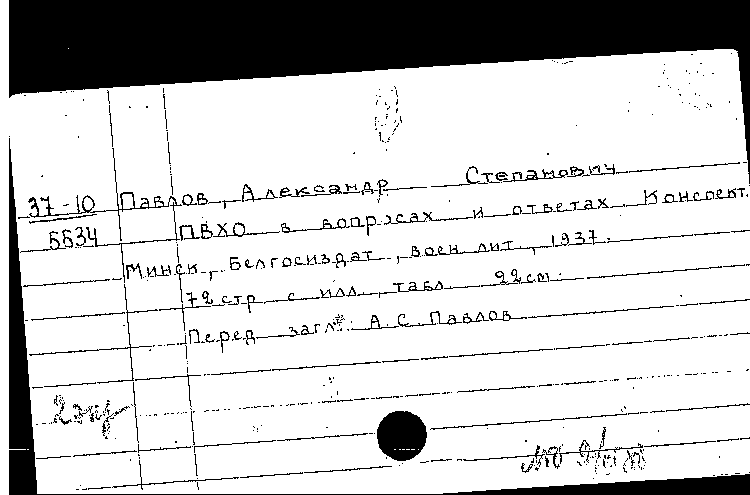 37-10 Павлов, Александр Степанович
5534 ПВХО в вопросах и ответах. Конспект.
Минск, Белгосиздат, воен. лит., 1937.
72 стр. с илл., табл. 22 см.
Перед загл.: А. С. Павлов
2 экз